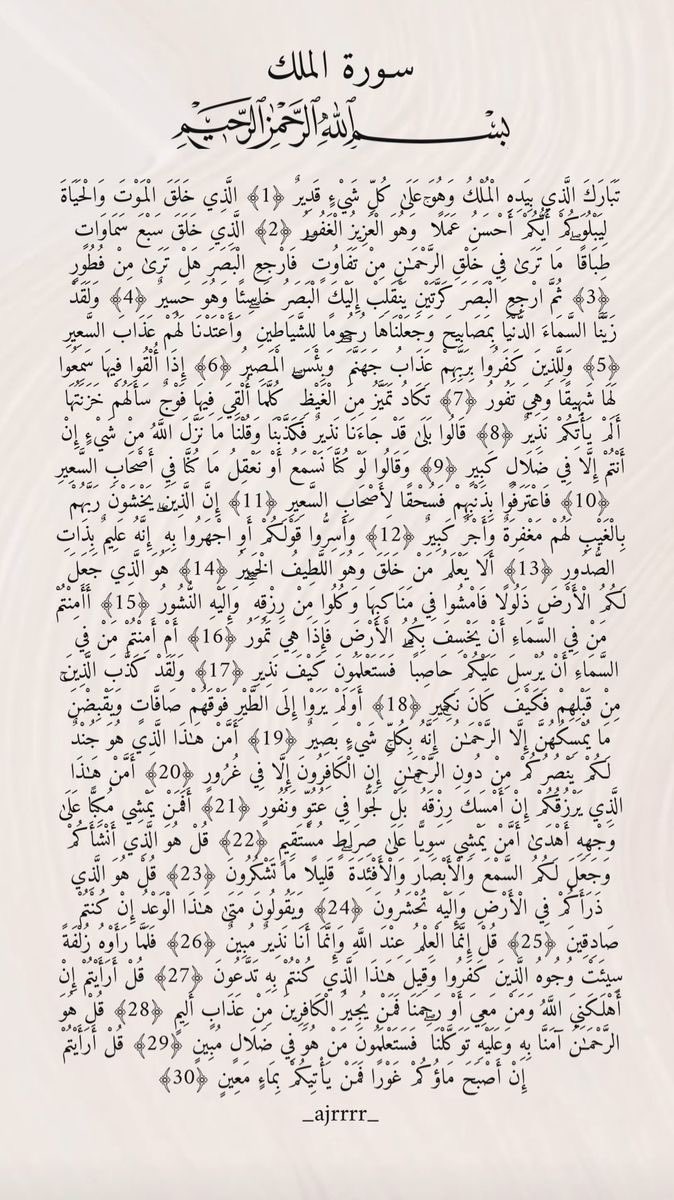 سورة الملك
بِسْمِ اللَّهِ الرَّحْمَٰنِ الرَّحِيمِ
تَبَارَكَ الَّذِي بِيَدِهِ الْمُلْكُ وَهُوَ عَلَىٰ كُلِّ شَيْءٍ قَدِيرٌ ﴿1﴾ الَّذِي خَلَقَ الْمَوْتَ وَالْحَيَاةَ
لِيَبْلُوَكُمْ أَيُّكُمْ أَحْسَنُ عَمَلًا ۚ وَهُوَ الْعَزِيزُ الْغَفُورُ ﴿2﴾ الَّذِي خَلَقَ سَبْعَ سَمَاوَاتٍ
طِبَاقًا ۖ مَا تَرَىٰ فِي خَلْقِ الرَّحْمَٰنِ مِنْ تَفَاوُتٍ ۖ فَارْجِعِ الْبَصَرَ هَلْ تَرَىٰ مِنْ فُطُورٍ
﴿3﴾ ثُمَّ ارْجِعِ الْبَصَرَ كَرَّتَيْنِ يَنْقَلِبْ إِلَيْكَ الْبَصَرُ خَاسِئًا وَهُوَ حَسِيرٌ ﴿4﴾ وَلَقَدْ
زَيَّنَّا السَّمَاءَ الدُّنْيَا بِمَصَابِيحَ وَجَعَلْنَاهَا رُجُومًا لِلشَّيَاطِينِ ۖ وَأَعْتَدْنَا لَهُمْ عَذَابَ السَّعِيرِ
﴿5﴾ وَلِلَّذِينَ كَفَرُوا بِرَبِّهِمْ عَذَابُ جَهَنَّمَ ۖ وَبِئْسَ الْمَصِيرُ ﴿6﴾ إِذَا أُلْقُوا فِيهَا سَمِعُوا
لَهَا شَهِيقًا وَهِيَ تَفُورُ ﴿7﴾ تَكَادُ تَمَيَّزُ مِنَ الْغَيْظِ ۖ كُلَّمَا أُلْقِيَ فِيهَا فَوْجٌ سَأَلَهُمْ خَزَنَتُهَا
أَلَمْ يَأْتِكُمْ نَذِيرٌ ﴿8﴾ قَالُوا بَلَىٰ قَدْ جَاءَنَا نَذِيرٌ فَكَذَّبْنَا وَقُلْنَا مَا نَزَّلَ اللَّهُ مِنْ شَيْءٍ إِنْ
أَنْتُمْ إِلَّا فِي ضَلَالٍ كَبِيرٍ ﴿9﴾ وَقَالُوا لَوْ كُنَّا نَسْمَعُ أَوْ نَعْقِلُ مَا كُنَّا فِي أَصْحَابِ السَّعِيرِ
﴿10﴾ فَاعْتَرَفُوا بِذَنْبِهِمْ فَسُحْقًا لِأَصْحَابِ السَّعِيرِ ﴿11﴾ إِنَّ الَّذِينَ يَخْشَوْنَ رَبَّهُمْ
بِالْغَيْبِ لَهُمْ مَغْفِرَةٌ وَأَجْرٌ كَبِيرٌ ﴿12﴾ وَأَسِرُّوا قَوْلَكُمْ أَوِ اجْهَرُوا بِهِ ۖ إِنَّهُ عَلِيمٌ بِذَاتِ
الصُّدُورِ ﴿13﴾ أَلَا يَعْلَمُ مَنْ خَلَقَ وَهُوَ اللَّطِيفُ الْخَبِيرُ ﴿14﴾ هُوَ الَّذِي جَعَلَ
لَكُمُ الْأَرْضَ ذَلُولًا فَامْشُوا فِي مَنَاكِبِهَا وَكُلُوا مِنْ رِزْقِهِ ۖ وَإِلَيْهِ النُّشُورُ ﴿15﴾ أَأَمِنْتُمْ
مَنْ فِي السَّمَاءِ أَنْ يَخْسِفَ بِكُمُ الْأَرْضَ فَإِذَا هِيَ تَمُورُ ﴿16﴾ أَمْ أَمِنْتُمْ مَنْ فِي
السَّمَاءِ أَنْ يُرْسِلَ عَلَيْكُمْ حَاصِبًا ۖ فَسَتَعْلَمُونَ كَيْفَ نَذِيرِ ﴿17﴾ وَلَقَدْ كَذَّبَ الَّذِينَ
مِنْ قَبْلِهِمْ فَكَيْفَ كَانَ نَكِيرِ ﴿18﴾ أَوَلَمْ يَرَوْا إِلَى الطَّيْرِ فَوْقَهُمْ صَافَّاتٍ وَيَقْبِضْنَ ۚ
مَا يُمْسِكُهُنَّ إِلَّا الرَّحْمَٰنُ ۚ إِنَّهُ بِكُلِّ شَيْءٍ بَصِيرٌ ﴿19﴾ أَمَّنْ هَٰذَا الَّذِي هُوَ جُنْدٌ
لَكُمْ يَنْصُرُكُمْ مِنْ دُونِ الرَّحْمَٰنِ ۚ إِنِ الْكَافِرُونَ إِلَّا فِي غُرُورٍ ﴿20﴾ أَمَّنْ هَٰذَا
الَّذِي يَرْزُقُكُمْ إِنْ أَمْسَكَ رِزْقَهُ ۚ بَلْ لَجُّوا فِي عُتُوٍّ وَنُفُورٍ ﴿21﴾ أَفَمَنْ يَمْشِي مُكِبًّا عَلَىٰ
وَجْهِهِ أَهْدَىٰ أَمَّنْ يَمْشِي سَوِيًّا عَلَىٰ صِرَاطٍ مُسْتَقِيمٍ ﴿22﴾ قُلْ هُوَ الَّذِي أَنْشَأَكُمْ
وَجَعَلَ لَكُمُ السَّمْعَ وَالْأَبْصَارَ وَالْأَفْئِدَةَ ۖ قَلِيلًا مَا تَشْكُرُونَ ﴿23﴾ قُلْ هُوَ الَّذِي
ذَرَأَكُمْ فِي الْأَرْضِ وَإِلَيْهِ تُحْشَرُونَ ﴿24﴾ وَيَقُولُونَ مَتَىٰ هَٰذَا الْوَعْدُ إِنْ كُنْتُمْ
صَادِقِينَ ﴿25﴾ قُلْ إِنَّمَا الْعِلْمُ عِنْدَ اللَّهِ وَإِنَّمَا أَنَا نَذِيرٌ مُبِينٌ ﴿26﴾ فَلَمَّا رَأَوْهُ زُلْفَةً
سِيئَتْ وُجُوهُ الَّذِينَ كَفَرُوا وَقِيلَ هَٰذَا الَّذِي كُنْتُمْ بِهِ تَدَّعُونَ ﴿27﴾ قُلْ أَرَأَيْتُمْ إِنْ
أَهْلَكَنِيَ اللَّهُ وَمَنْ مَعِيَ أَوْ رَحِمَنَا فَمَنْ يُجِيرُ الْكَافِرِينَ مِنْ عَذَابٍ أَلِيمٍ ﴿28﴾ قُلْ هُوَ
الرَّحْمَٰنُ آمَنَّا بِهِ وَعَلَيْهِ تَوَكَّلْنَا ۖ فَسَتَعْلَمُونَ مَنْ هُوَ فِي ضَلَالٍ مُبِينٍ ﴿29﴾ قُلْ أَرَأَيْتُمْ
إِنْ أَصْبَحَ مَاؤُكُمْ غَوْرًا فَمَنْ يَأْتِيكُمْ بِمَاءٍ مَعِينٍ ﴿30﴾
_ajrrrr_